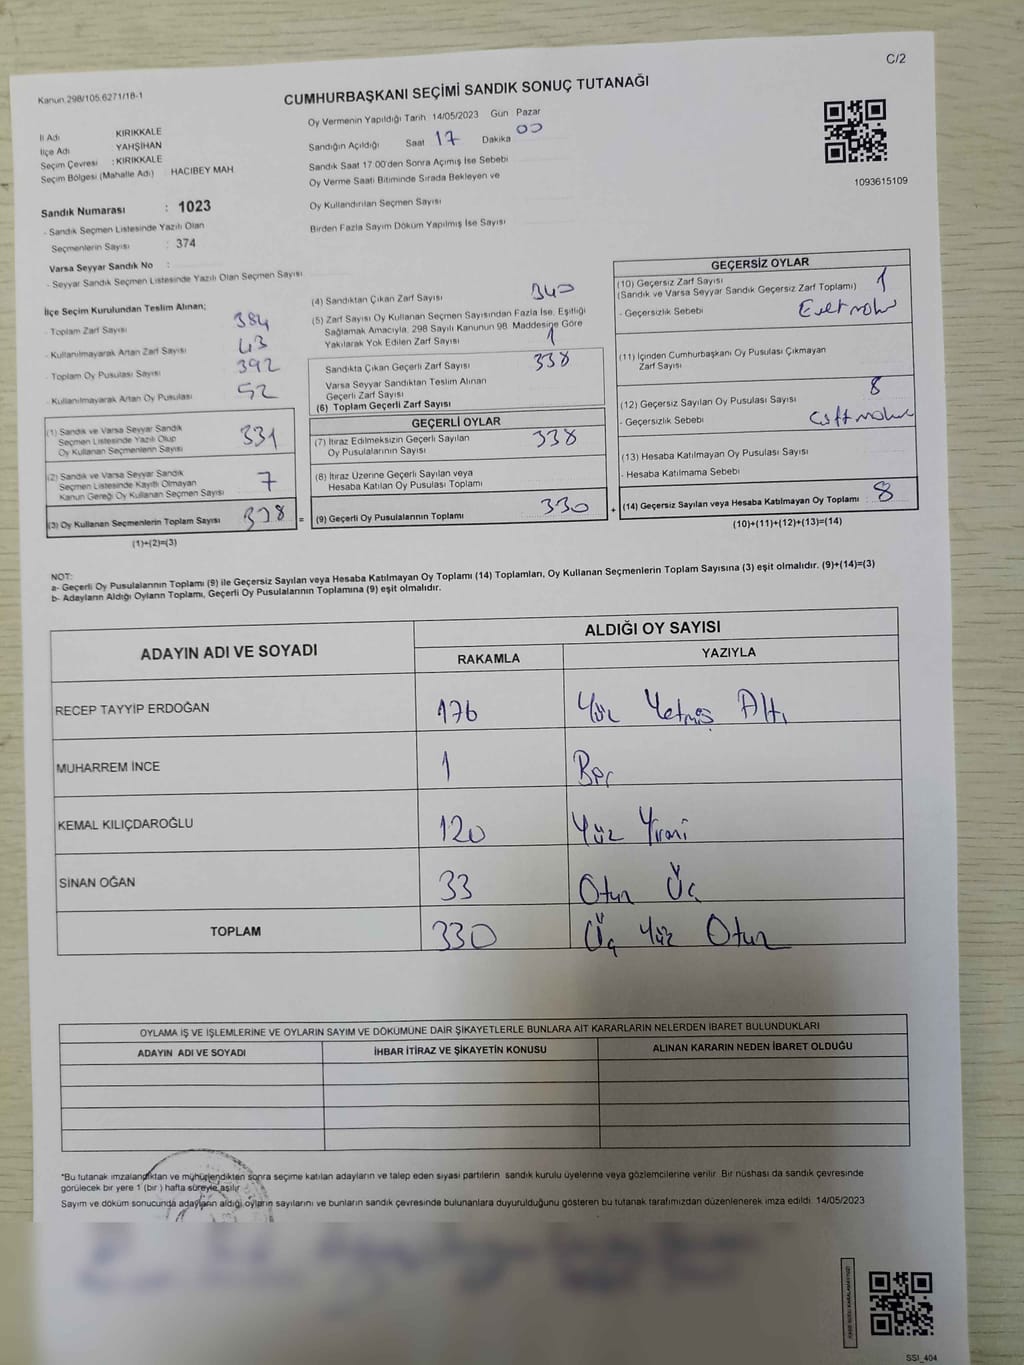 C/2
Kanun.298/105.6271/18-1
CUMHURBAŞKANI SEÇİMİ SANDIK SONUÇ TUTANAĞI
İl Adı KIRIKKALE
İlçe Adı YAHŞİHAN
Seçim Çevresi : KIRIKKALE
Seçim Bölgesi (Mahalle Adı) : HACIBEY MAH.
Oy Vermenin Yapıldığı Tarih 14/05/2023 Gün Pazar
Sandığın Açıldığı Saat 17 Dakika 00
Sandık Saat 17:00'den Sonra Açımış İse Sebebi
Oy Verme Saati Bitiminde Sırada Bekleyen ve
Oy Kullandırılan Seçmen Sayısı
Birden Fazla Sayım Döküm Yapılmış İse Sayısı
1093615109
Sandık Numarası : 1023
- Sandık Seçmen Listesinde Yazılı Olan
Seçmenlerin Sayısı : 374
Varsa Seyyar Sandık No :
- Seyyar Sandık Seçmen Listesinde Yazılı Olan Seçmen Sayısı
İlçe Seçim Kurulundan Teslim Alınan;
- Toplam Zarf Sayısı 384
- Kullanılmayarak Artan Zarf Sayısı 43
- Toplam Oy Pusulası Sayısı 392
- Kullanılmayarak Artan Oy Pusulası 52
(1) Sandık ve Varsa Seyyar Sandık
Seçmen Listesinde Yazılı Olup
Oy Kullanan Seçmenlerin Sayısı 331
(2) Sandık ve Varsa Seyyar Sandık
Seçmen Listesinde Kayıtlı Olmayan
Kanun Gereği Oy Kullanan Seçmen Sayısı 7
(3) Oy Kullanan Seçmenlerin Toplam Sayısı 338 =
(1)+(2)=(3)
(4) Sandıktan Çıkan Zarf Sayısı 340
(5) Zarf Sayısı Oy Kullanan Seçmen Sayısından Fazla İse, Eşitliği
Sağlamak Amacıyla, 298 Sayılı Kanunun 98. Maddesine Göre
Yakılarak Yok Edilen Zarf Sayısı 1
Sandıkta Çıkan Geçerli Zarf Sayısı 338
Varsa Seyyar Sandıktan Teslim Alınan
Geçerli Zarf Sayısı
(6) Toplam Geçerli Zarf Sayısı
GEÇERLİ OYLAR
(7) İtiraz Edilmeksizin Geçerli Sayılan
Oy Pusulalarının Sayısı 338
(8) İtiraz Üzerine Geçerli Sayılan veya
Hesaba Katılan Oy Pusulası Toplamı
(9) Geçerli Oy Pusulalarının Toplamı 330 +
GEÇERSİZ OYLAR
(10) Geçersiz Zarf Sayısı 1
(Sandık ve Varsa Seyyar Sandık Geçersiz Zarf Toplamı)
- Geçersizlik Sebebi
(11) İçinden Cumhurbaşkanı Oy Pusulası Çıkmayan
Zarf Sayısı
(12) Geçersiz Sayılan Oy Pusulası Sayısı 8
- Geçersizlik Sebebi
(13) Hesaba Katılmayan Oy Pusulası Sayısı
- Hesaba Katılmama Sebebi
(14) Geçersiz Sayılan veya Hesaba Katılmayan Oy Toplamı 8
(10)+(11)+(12)+(13)=(14)
NOT:
a- Geçerli Oy Pusulalarının Toplamı (9) ile Geçersiz Sayılan veya Hesaba Katılmayan Oy Toplamı (14) Toplamları, Oy Kullanan Seçmenlerin Toplam Sayısına (3) eşit olmalıdır. (9)+(14)=(3)
b- Adayların Aldığı Oyların Toplamı, Geçerli Oy Pusulalarının Toplamına (9) eşit olmalıdır.
ADAYIN ADI VE SOYADI ALDIĞI OY SAYISI
RAKAMLA YAZIYLA
RECEP TAYYİP ERDOĞAN 176 Yüz Yetmiş Altı
MUHARREM İNCE 1 Bir
KEMAL KILIÇDAROĞLU 120 Yüz Yirmi
SİNAN OĞAN 33 Otuz Üç
TOPLAM 330 Üç Yüz Otuz
OYLAMA İŞ VE İŞLEMLERİNE VE OYLARIN SAYIM VE DÖKÜMÜNE DAİR ŞİKAYETLERLE BUNLARA AİT KARARLARIN NELERDEN İBARET BULUNDUKLARI
ADAYIN ADI VE SOYADI İHBAR İTİRAZ VE ŞİKAYETİN KONUSU ALINAN KARARIN NEDEN İBARET OLDUĞU
*Bu tutanak imzalandıktan ve mühürlendikten sonra seçime katılan adayların ve talep eden siyasi partilerin sandık kurulu üyelerine veya gözlemcilerine verilir. Bir nüshası da sandık çevresinde
görülecek bir yere 1 (bir ) hafta süreyle asılır.
Sayım ve döküm sonucunda adayların aldığı oyların sayılarını ve bunların sandık çevresinde bulunanlara duyurulduğunu gösteren bu tutanak tarafımızdan düzenlenerek imza edildi. 14/05/2023
SSI_404